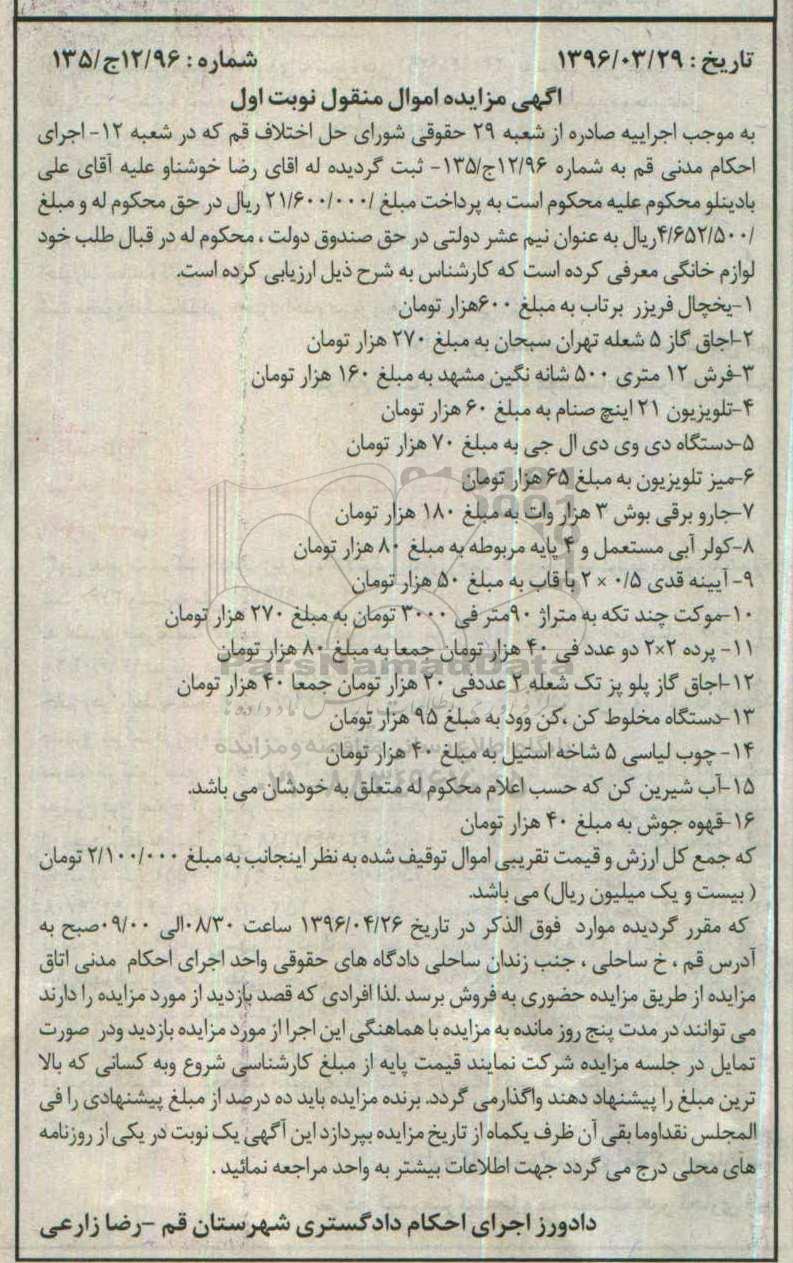 تاریخ : ۱۳۹۶/۰۳/۲۹
شماره : ۱۲/۹۶ج/۱۳۵
اگهی مزایده اموال منقول نوبت اول
به موجب اجراییه صادره از شعبه ۲۹ حقوقی شورای حل اختلاف قم که در شعبه ۱۲- اجرای
احکام مدنی قم به شماره ۱۲/۹۶ج/۱۳۵- ثبت گردیده له اقای رضا خوشناو علیه آقای علی
بادینلو محکوم علیه محکوم است به پرداخت مبلغ /۲۱/۶۰۰/۰۰۰ ریال در حق محکوم له و مبلغ
/۴/۶۵۲/۵۰۰ریال به عنوان نیم عشر دولتی در حق صندوق دولت ، محکوم له در قبال طلب خود
لوازم خانگی معرفی کرده است که کارشناس به شرح ذیل ارزیابی کرده است.
۱-یخچال فریزر برتاب به مبلغ ۶۰۰هزار تومان
۲-اجاق گاز ۵ شعله تهران سبحان به مبلغ ۲۷۰ هزار تومان
۳-فرش ۱۲ متری ۵۰۰ شانه نگین مشهد به مبلغ ۱۶۰ هزار تومان
۴-تلویزیون ۲۱ اینچ صنام به مبلغ ۶۰ هزار تومان
۵-دستگاه دی وی دی ال جی به مبلغ ۷۰ هزار تومان
۶-میز تلویزیون به مبلغ ۶۵ هزار تومان
۷-جارو برقی بوش ۳ هزار وات به مبلغ ۱۸۰ هزار تومان
۸-کولر آبی مستعمل و ۴ پایه مربوطه به مبلغ ۸۰ هزار تومان
۹- آیینه قدی ۰/۵ × ۲ با قاب به مبلغ ۵۰ هزار تومان
۱۰-موکت چند تکه به متراژ ۹۰متر فی ۳۰۰۰ تومان به مبلغ ۲۷۰ هزار تومان
۱۱- پرده ۲×۲ دو عدد فی ۴۰ هزار تومان جمعا به مبلغ ۸۰ هزار تومان
ParsNamadData
۱۲-اجاق گاز پلو پز تک شعله ۲ عددفی ۲۰ هزار تومان جمعا ۴۰ هزار تومان
۱۳-دستگاه مخلوط کن ،کن وود به مبلغ ۹۵ هزار تومان
۱۴- چوب لباسی ۵ شاخه استیل به مبلغ ۴۰ هزار تومان
۱۵-آب شیرین کن که حسب اعلام محکوم له متعلق به خودشان می باشد.
۱۶-قهوه جوش به مبلغ ۴۰ هزار تومان
که جمع کل ارزش و قیمت تقریبی اموال توقیف شده به نظر اینجانب به مبلغ ۲/۱۰۰/۰۰۰ تومان
( بیست و یک میلیون ریال) می باشد.
که مقرر گردیده موارد فوق الذکر در تاریخ ۱۳۹۶/۰۴/۲۶ ساعت ۰۸/۳۰الی ۰۹/۰۰صبح به
آدرس قم ، خ ساحلی ، جنب زندان ساحلی دادگاه های حقوقی واحد اجرای احکام مدنی اتاق
مزایده از طریق مزایده حضوری به فروش برسد .لذا افرادی که قصد بازدید از مورد مزایده را دارند
می توانند در مدت پنج روز مانده به مزایده با هماهنگی این اجرا از مورد مزایده بازدید ودر صورت
تمایل در جلسه مزایده شرکت نمایند قیمت پایه از مبلغ کارشناسی شروع وبه کسانی که بالا
ترین مبلغ را پیشنهاد دهند واگذارمی گردد. برنده مزایده باید ده درصد از مبلغ پیشنهادی را فی
المجلس نقداوما بقی آن ظرف یکماه از تاریخ مزایده بپردازد این آگهی یک نوبت در یکی از روزنامه
های محلی درج می گردد جهت اطلاعات بیشتر به واحد مراجعه نمائید .
دادورز اجرای احکام دادگستری شهرستان قم -رضا زارعی